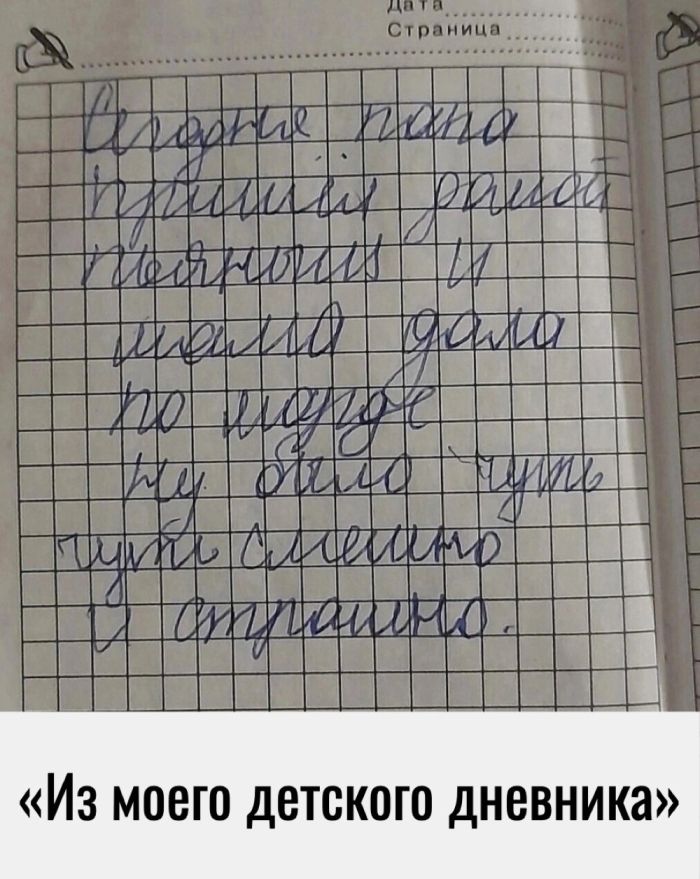 Дата
Страница
Сегодня папа
пришёл домой
пьяный и
мама дала
по морде
Ну было чуть
чуть смешно
и страшно.
«Из моего детского дневника»